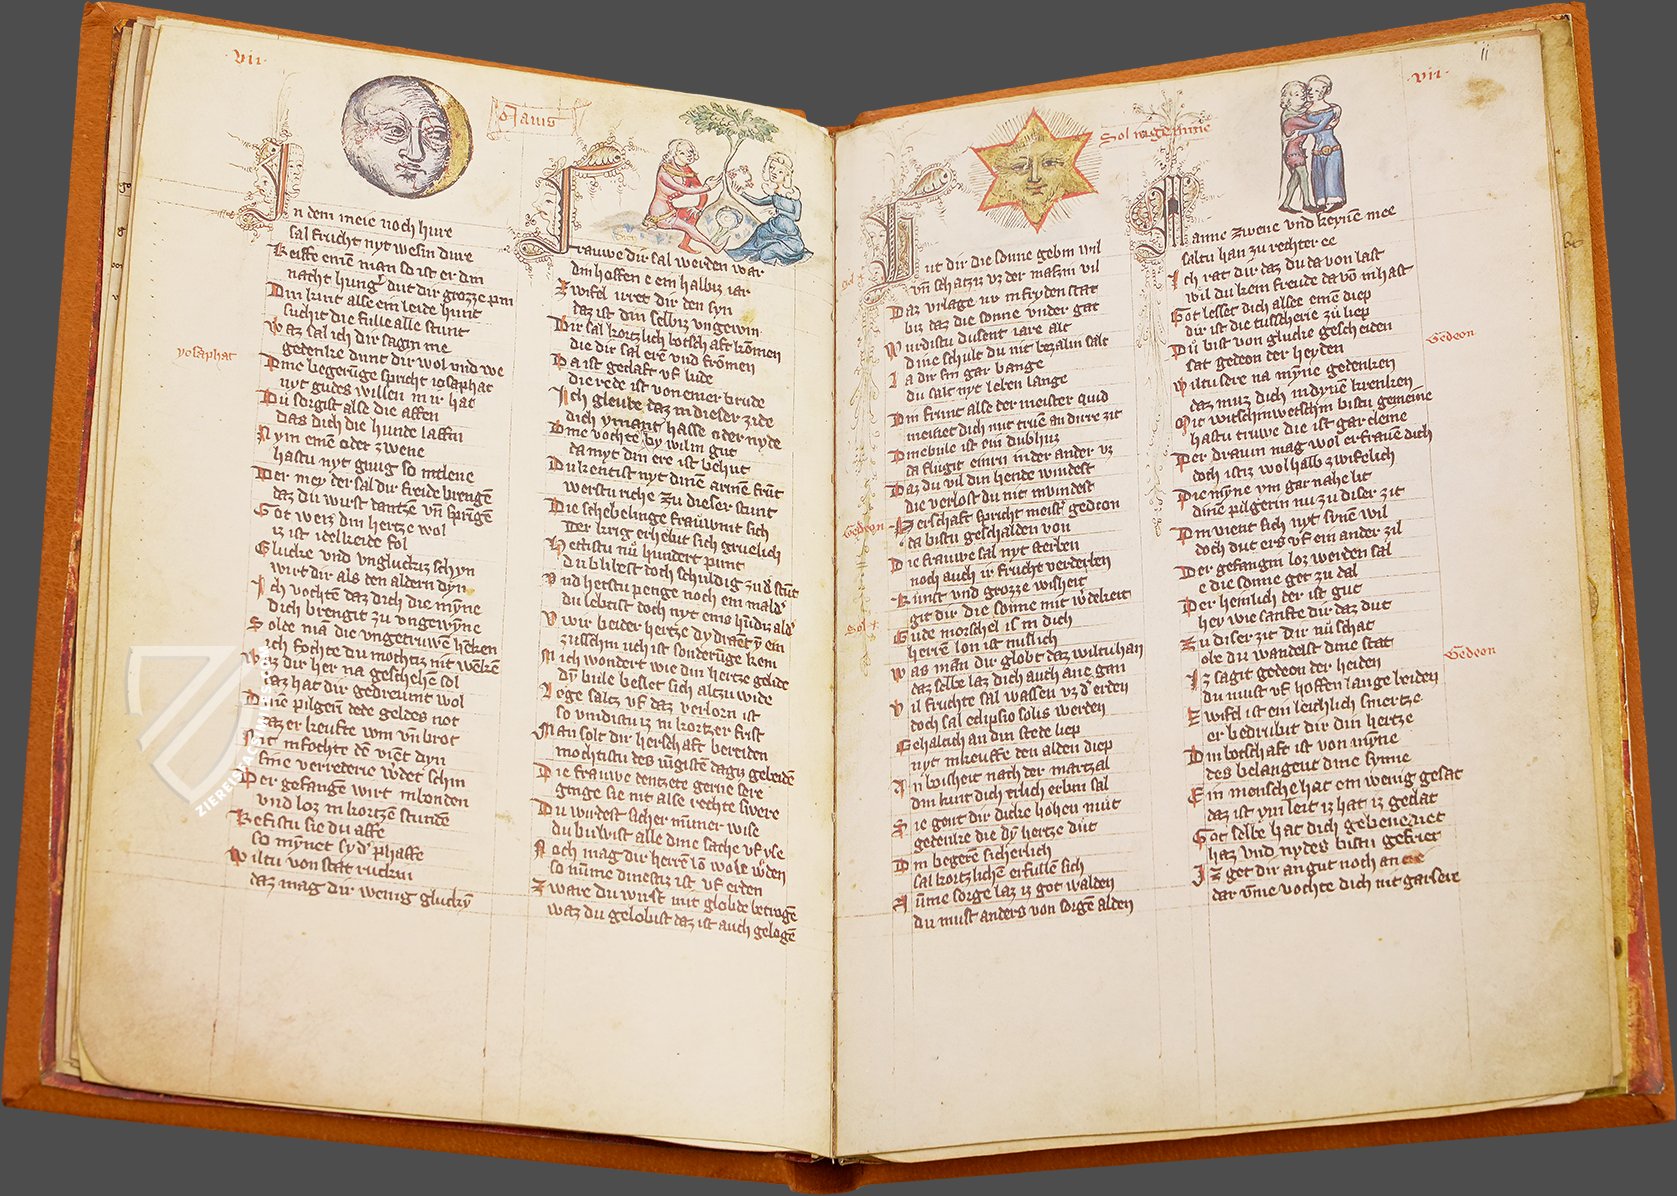 ·vii·
In dem meie noch hure
sal frucht nyt wesin dure
Reiffe eniē man so ist er din
nacht hung' dut dir grozze pin
Din kint alse ein leide hunt
sucht die fulle alle stunt
Waz sal ich dir sagin me
gedenke dunt dir wol und we
yosaphat
Dine begerūge spricht iosaphat
nyt gudes willen in ir hat
Du sorgist alse die affen
das dich die hunde laffin
Nym einē oder zwene
hastu nyt gnug so mclene
Der mey der sal dir freide brengē
daz du wirst dantzē vn̄ sprīgē
Got weiz din hertze wol
iz ist idelkeide fol
Glucke vnd vngluckiz schyn
wirt dir als den aldern dyn
Ich vochtē daz dich die mȳne
dich brengit zu vngewȳne
Solde mā die vngetruwen hēken
ich fochte du mochtiz nit wēkē
Waz dir her na geschehē sol
daz hat dir gedreumt wol
Dinē pilgerī dede geldes not
daz er keufte win vn̄ brot
Nit infochte dē viēt dyn
sine verrederie w'det schin
Der gefangē wirt inbonden
vnd loz in kortzē stunde
Refistu sie du affe
so mȳnet sy d' phaffe
Wiltu von stat ruckin
daz mag dir wenig gluckȳ
Frauwe dir sal werden war
din hoffen e ein halbiz iar
Zwifel irret dir den syn
daz ist din selbiz vngewin
Dir sal kortzlich botschaft kōmen
die dir sal erē vnd frōmen
Da ist geclaft vf lude
die rede ist von einer brude
Ich gleube daz in dieser zide
dich ymant hasse oder nyde
Dine vochte by wiln gut
da myt din ere ist behut
Du kentist nyt dinē armē frūt
werstu riche zu dieser stunt
Die schebelinge frauwnit sich
Der krig erhebit sich gruelich
Hettistu nū hundert punt
du blibest doch schuldig zu d' stūt
Vnd hetstu penge noch ein mald'
du lebtist doch nyt eins hūdiz ald'
Vwir beider hertze dy draēt ȳ ein
zusschin uch ist sonderūge kein
Mich wondert wie din hertze gelide
dȳ bule besset sich altzu wide
Lege saltz vf daz verlorn ist
so vindistu iz in kortzer frist
Man solt dir herschaft bereiden
mochtistu des iūgistē dagis gebeidē
Die frauwe dentzete gerne sere
ginge sie nit alse rechte swere
Du wirdest sicher nūmer wise
du buwist alle dine sache vf yse
Noch mag dir herrē lō wole w'den
so nūme dinestiz ist vf erden
Zware du wirst mit globde betrogē
waz du gelobist daz ist auch gelogē
·vii·
ii
Sol in gemine
Lut dir die sonne gebin wil
vn̄ schatziz vz der masin vil
Daz vrlage uv in fryden stat
biz daz die sonne vnder gat
Wurdistu dusent iare alt
dine schult du nit bezalin salt
Ja dir sin gar bange
du salt nyt leben lange
Din frunt alse der meister quid
meinet dich mit truē an dirre zit
Dinebule ist ein dubhuz
da flugit einrn inder ander vz
Daz du vil din hende windest
die verlost du nit invindest
Gedeon
Herschaft spricht meist' gedeon
da bistu geschalden von
Die frauwe sal nyt sterben
noch auch ir fruche verderben
Kunst vnd grozze wisheit
git dir die sonne mit w'dekeit
Gude morschel is in dich
herrē lon ist mislich
Was man dir globt daz wiltu han
daz selbe laz dich auch ane gan
Vil fruchte sal wassen vz d' erden
doch sal eclipsio solis werden
Gehaltich an din stede liep
nyt inkeuffe den alden diep
An wisheit nach der martzal
din kint dich erlich erbin sal
Sie geut dir dicke hohen mut
gedenke die dȳ hertze dut
Din begerē sicherlich
sal kortzlichē erfullē sich
Nūme sorge laz iz got walden
du must anders von sorgē alden
Manne zwene vnd keynē mee
saltu han zu rechter ee
Ich rat dir daz du da von last
wil du kein freude da vō inhast
Got lesset dich alse einē diep
dir ist die tusscherie zu liep
Du bist von glucke gescheiden
sat gedeon der heyden
Gedeon
Wiltu sere na mȳne gedenken
daz muz dich indynē krenken
Mit witschinwetschin bistu gemeine
hastu truwe die ist gar cleine
Der draum mag wol erfrauē dich
doch istiz wol halb zwifelich
Die mȳne ym gar nahe lit
dine pilgerin nu zu diser zit
Din vient sich nyt synē wil
doch dut ers vf ein ander zil
Der gefangin loz werden sal
e die sonne get zu dal
Der heimlich der ist gut
hey wie sanfte dir daz dut
Zu diser zit dir nū schat
obe du wandelst dine stat
Iz sagit gedeon der heiden
du must vf hoffen lange beiden
Gedeon
Zwifel ist ein leichlich smertze
er bedrubit dir din hertze
Din botschaft ist von mȳne
des belangent dine synne
Ein mensche hat ein wenig gesat
daz ist ym leit iz hat iz gedat
Got selbe hat dich gebenediet
haz vnd nydes bistu gefriet
Iz get dir an gut noch an ere
dar vme vochte dich nit gar sere
ZIERESFACSIMILES.COM